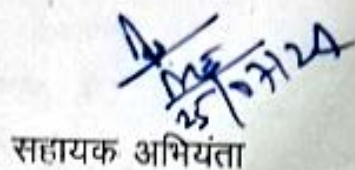 25/07/24
सहायक अभियंता